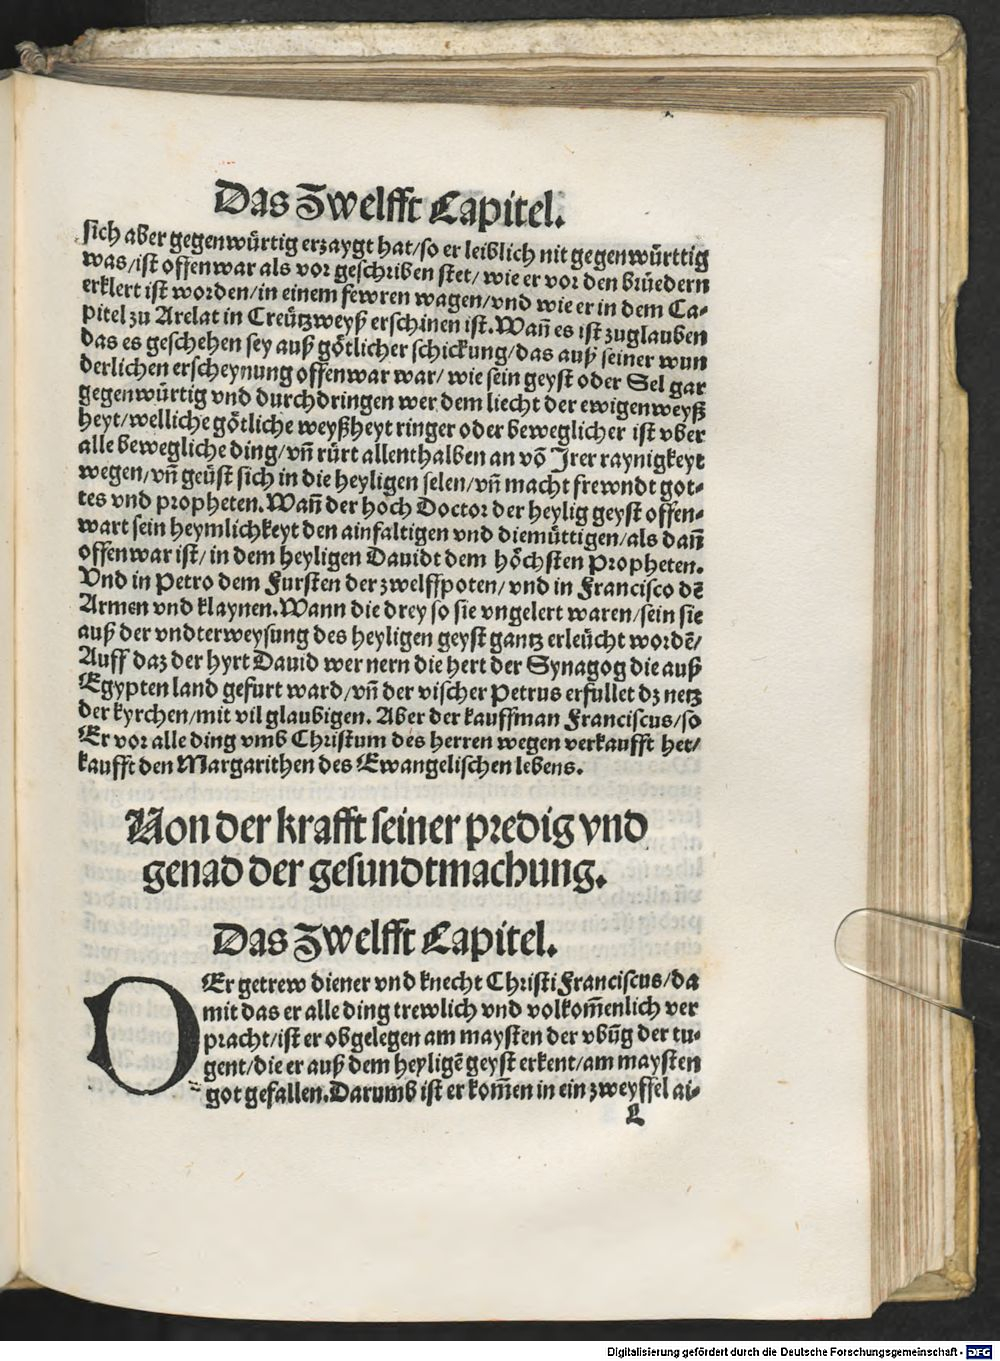 Das Zwelfft Capitel.
sich aber gegenwürtig erzaygt hat/so er leiblich nit gegenwürttig
was/ist offenwar als vor geschriben stet/ wie er vor den brüedern
erklert ist worden/in einem fewren wagen/vnd wie er in dem Ca-
pitel zu Arelat in Creützweyß erschinen ist. Wañ es ist zuglauben
das es geschehen sey auß götlicher schickung/das auß seiner wun
derlichen erscheynung offenwar war/ wie sein geyst oder Sel gar
gegenwürtig vnd durchdringen wer dem liecht der ewigen weyß
heyt/welliche götliche weyßheyt ringer oder beweglicher ist vber
alle bewegliche ding/vñ rürt allenthalben an võ Jrer raynigkeyt
wegen/vñ geüst sich in die heyligen selen/vñ macht frewndt got-
tes vnd propheten. Wañ der hoch Doctor der heylig geyst offen-
wart sein heymlichkeyt den ainfaltigen vnd diemüttigen/als dañ
offenwar ist/ in dem heyligen Dauidt dem höchsten Propheten.
Vnd in Petro dem Fursten der zwelffpoten/ vnd in Francisco dē
Armen vnd klaynen. Wann die drey so sie vngelert waren/sein sie
auß der vndterweysung des heyligen geyst gantz erleücht wordē/
Auff daz der hyrt Dauid wer nern die hert der Synagog die auß
Egypten land gefurt ward/vñ der vischer Petrus erfullet dz netz
der kyrchen/mit vil glaubigen. Aber der kauffman Franciscus/so
Er vor alle ding vmb Christum des herren wegen verkaufft het/
kaufft den Margarithen des Ewangelischen lebens.
Von der krafft seiner predig vnd
genad der gesundtmachung.
Das Zwelfft Capitel.
DEr getrew diener vnd knecht Christi Franciscus/da
mit das er alle ding trewlich vnd volkom̃enlich ver
pracht/ist er obgelegen am maysten der vbũg der tu-
gent/die er auß dem heyligē geyst erkent/am maysten
got gefallen. Darumb ist er kom̃en in ein zweyffel ai-
L
Digitalisierung gefördert durch die Deutsche Forschungsgemeinschaft - DFG